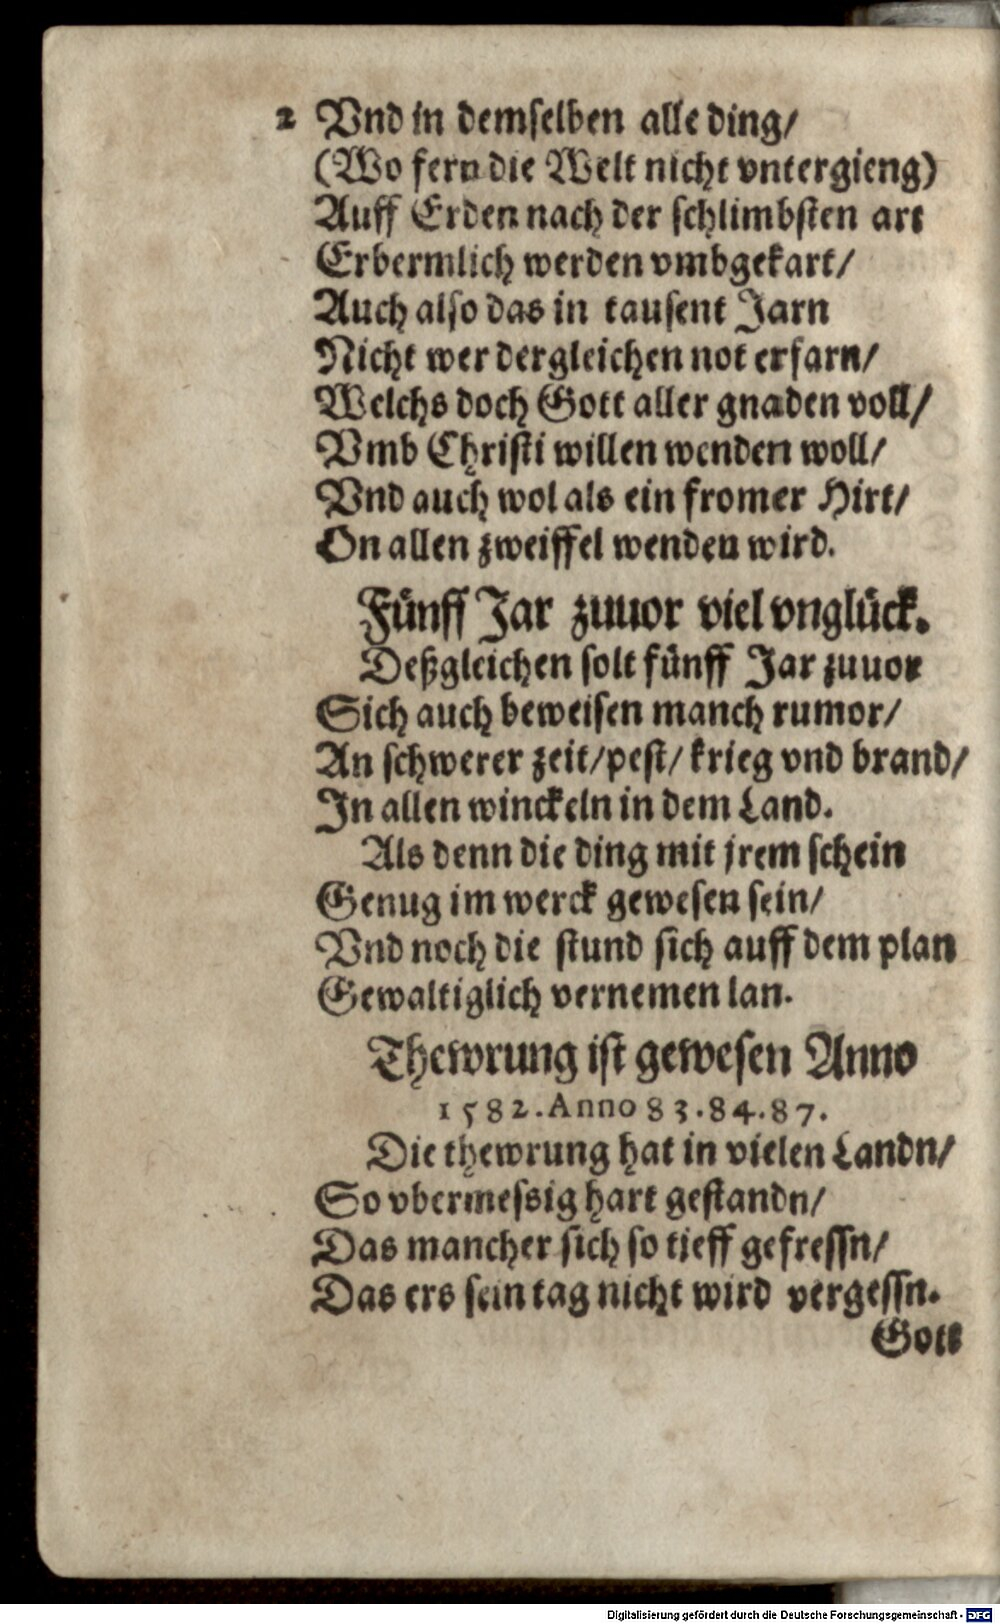 2 Vnd in demselben alle ding/
(Wo fern die Welt nicht vntergieng)
Auff Erden nach der schlimbsten art
Erbermlich werden vmbgekart/
Auch also das in tausent Jarn
Nicht wer dergleichen not erfarn/
Welchs doch Gott aller gnaden voll/
Vmb Christi willen wenden woll/
Vnd auch wol als ein fromer Hirt/
On allen zweiffel wenden wird.
Fünff Jar zuuor viel vnglück.
Deßgleichen solt fünff Jar zuuor
Sich auch beweisen manch rumor/
An schwerer zeit/pest/ krieg vnd brand/
In allen winckeln in dem Land.
Als denn die ding mit jrem schein
Genug im werck gewesen sein/
Vnd noch die stund sich auff dem plan
Gewaltiglich vernemen lan.
Thewrung ist gewesen Anno
1582. Anno 83.84.87.
Die thewrung hat in vielen Landn/
So vbermessig hart gestandn/
Das mancher sich so tieff gefressn/
Das ers sein tag nicht wird vergessn.
Gott
Digitalisierung gefördert durch die Deutsche Forschungsgemeinschaft - DFG